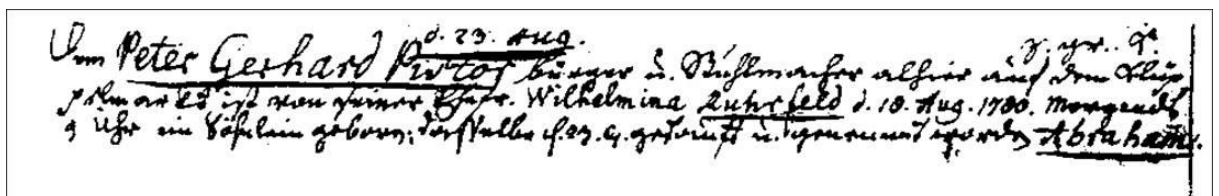 d. 23. Aug.
Dem Peter Gerhard Pistor bürger u. Stuhlmacher alhier auf dem
ist von seiner Ehefr. Wilhelmina Luhrfeld d. 18. Aug. 1780. Morgends
9 Uhr ein Söhnlein geboren; daßelbe d. 23. ej. getauft u. genennet worden Abraham.